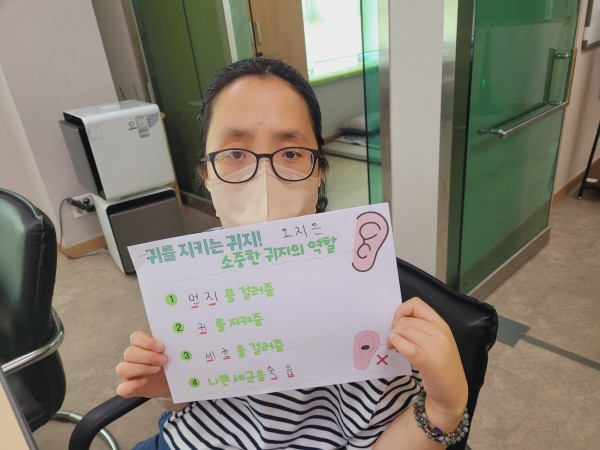 귀를 지키는 귀지! 오지은
소중한 귀지의 역할
1 먼지를 걸러줌
2 귀를 지켜줌
3 비초을 걸러줌
4 나쁜 세균을 죽음